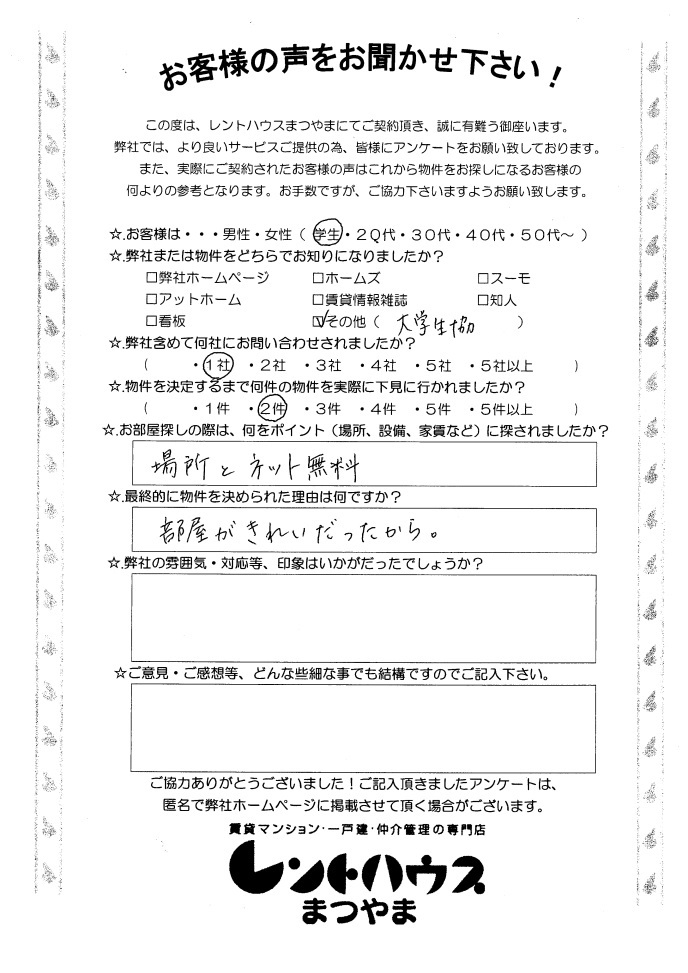 お客様の声をお聞かせ下さい！
この度は、レントハウスまつやまにてご契約頂き、誠に有難う御座います。
弊社では、より良いサービスご提供の為、皆様にアンケートをお願い致しております。
また、実際にご契約されたお客様の声はこれから物件をお探しになるお客様の
何よりの参考となります。お手数ですが、ご協力下さいますようお願い致します。
☆.お客様は・・・男性・女性（ 学生・２０代・３０代・４０代・５０代～ ）
☆.弊社または物件をどちらでお知りになりましたか？
□弊社ホームページ □ホームズ □スーモ
□アットホーム □賃貸情報雑誌 □知人
□看板 ☑その他（ 大学生協 ）
☆.弊社含めて何社にお問い合わせされましたか？
（ ・１社 ・２社 ・３社 ・４社 ・５社 ・５社以上 ）
☆.物件を決定するまで何件の物件を実際に下見に行かれましたか？
（ ・１件 ・２件 ・３件 ・４件 ・５件 ・５件以上 ）
☆.お部屋探しの際は、何をポイント（場所、設備、家賃など）に探されましたか？
場所とネット無料
☆.最終的に物件を決められた理由は何ですか？
部屋がきれいだったから。
☆.弊社の雰囲気・対応等、印象はいかがだったでしょうか？
☆ご意見・ご感想等、どんな些細な事でも結構ですのでご記入下さい。
ご協力ありがとうございました！ご記入頂きましたアンケートは、
匿名で弊社ホームページに掲載させて頂く場合がございます。
賃貸マンション・一戸建・仲介管理の専門店
レントハウス
まつやま